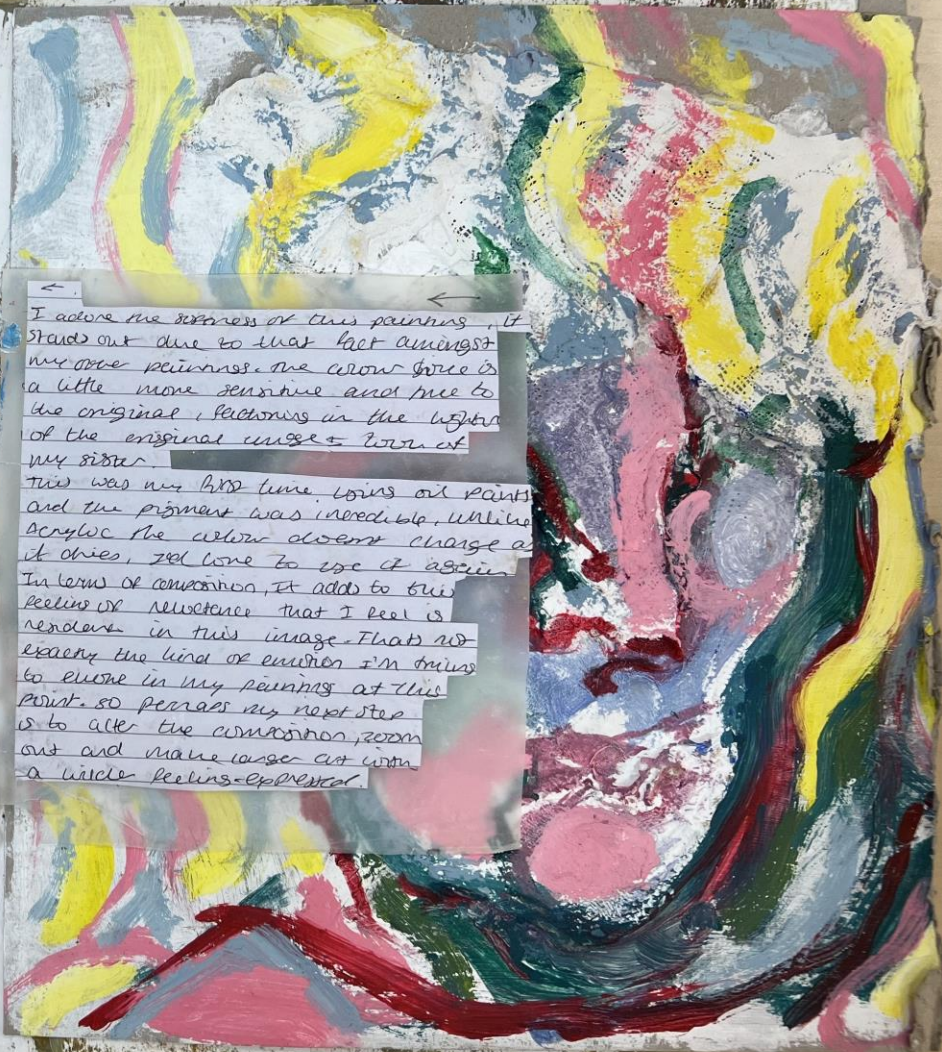 I adore the softness of this painting, it
stands out due to that fact amongst
my other paintings. The colour is
a little more sensitive and true to
the original, factoring in the
of the original image + look of
my sister.
This was my first time using oil paints
and the pigment was incredible, unlike
Acrylic the colour doesnt change as
it dries, id love to use it again
In terms of composition, It adds to this
feeling of reluctance that I feel is
resident in this image. Thats not
exactly the kind of emotion I'm trying
to evoke in my paintings at this
point. so perhaps my next step
is to alter the composition, zoom
out and make larger art with
a wider feeling expressed.